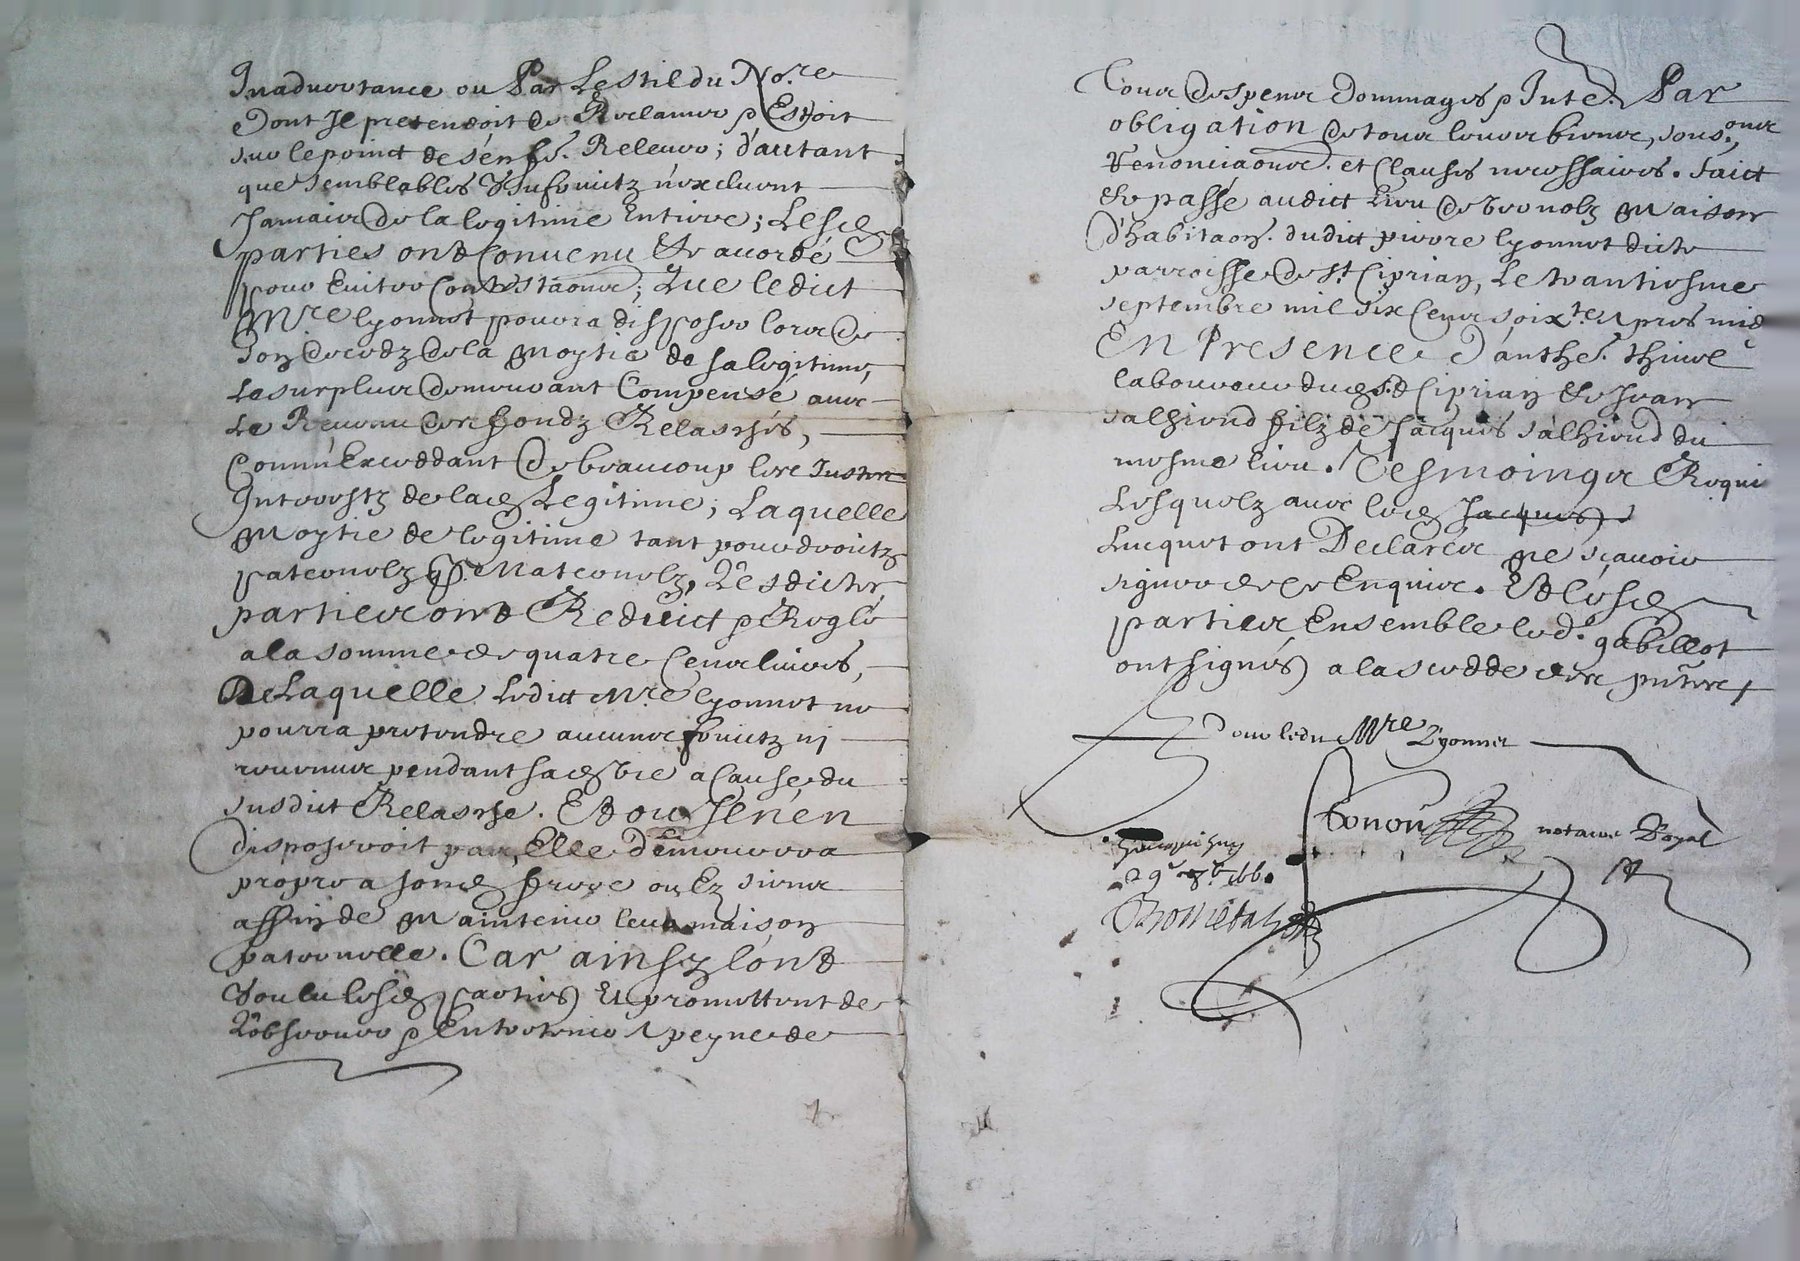 Inadvertance ou Par Le stil du No.re
Dont Il pretendoit de Reclamer & Estoit
sur le poinct de s'en f.e Relever; d'autant
que semblables Usufruictz n'excluent
Jamais de la legitime Entiere; Lesd
parties ont Convenu Et accordé
pour Eviter Contestaons; Que ledict
Mre lyonnet pourra disposer lors de
son decedz de la Moytie de sa legitime,
Le surplus demeurant Compensé avec
Le Revenu des fondz Relaschés,
Comm' Exceddant de beaucoup les Justes
Interestz de lad Legitime; Laquelle
Moytie de legitime tant pour droictz
paternelz q. Maternelz, Lesdictes
parties ont Reduict & Reglé
a la somme de quatre Cens livres,
De Laquelle Ledict Mre lyonnet ne
pourra pretendre aucuns fruictz ni
revenus pendant sad vie a Cause du
susdict Relasche. Et ou Il n'en
disposeroit pas, Elle demeurera
propre a sond frere ou Ez siens
affin de Maintenir leur maison
paternelle. Car ainsy l'ont
Voulu lesd parties Et promettent de
L'observer & Entretenir A peyne de
Tous despens dommages & Inte. Par
obligation de tous leurs biens, sous.ons
Renonciaons et Clauses necessaires. Faict
Et passé audict Lieu de Maison
d'habitaon dudict pierre lyonnet dicte
parroisse de St Ciprian, Le trantiesme
septembre mil six Cens soix.te Apres midi
En Presence D'anthe.
laboureur dud St Ciprian Et Jean
salhiend filz de Jacques salhiend du
mesme lieu. Tesmoings Requis
Lesquelz avec led Jacques
Lucquet ont Declarés Ne sçavoir
signer de ce Enquis. Et lesd
parties Ensemble led. gabillot
ont signés a la scedde des pntes
Pour ledit Mre Lyonnet
notaire Royal